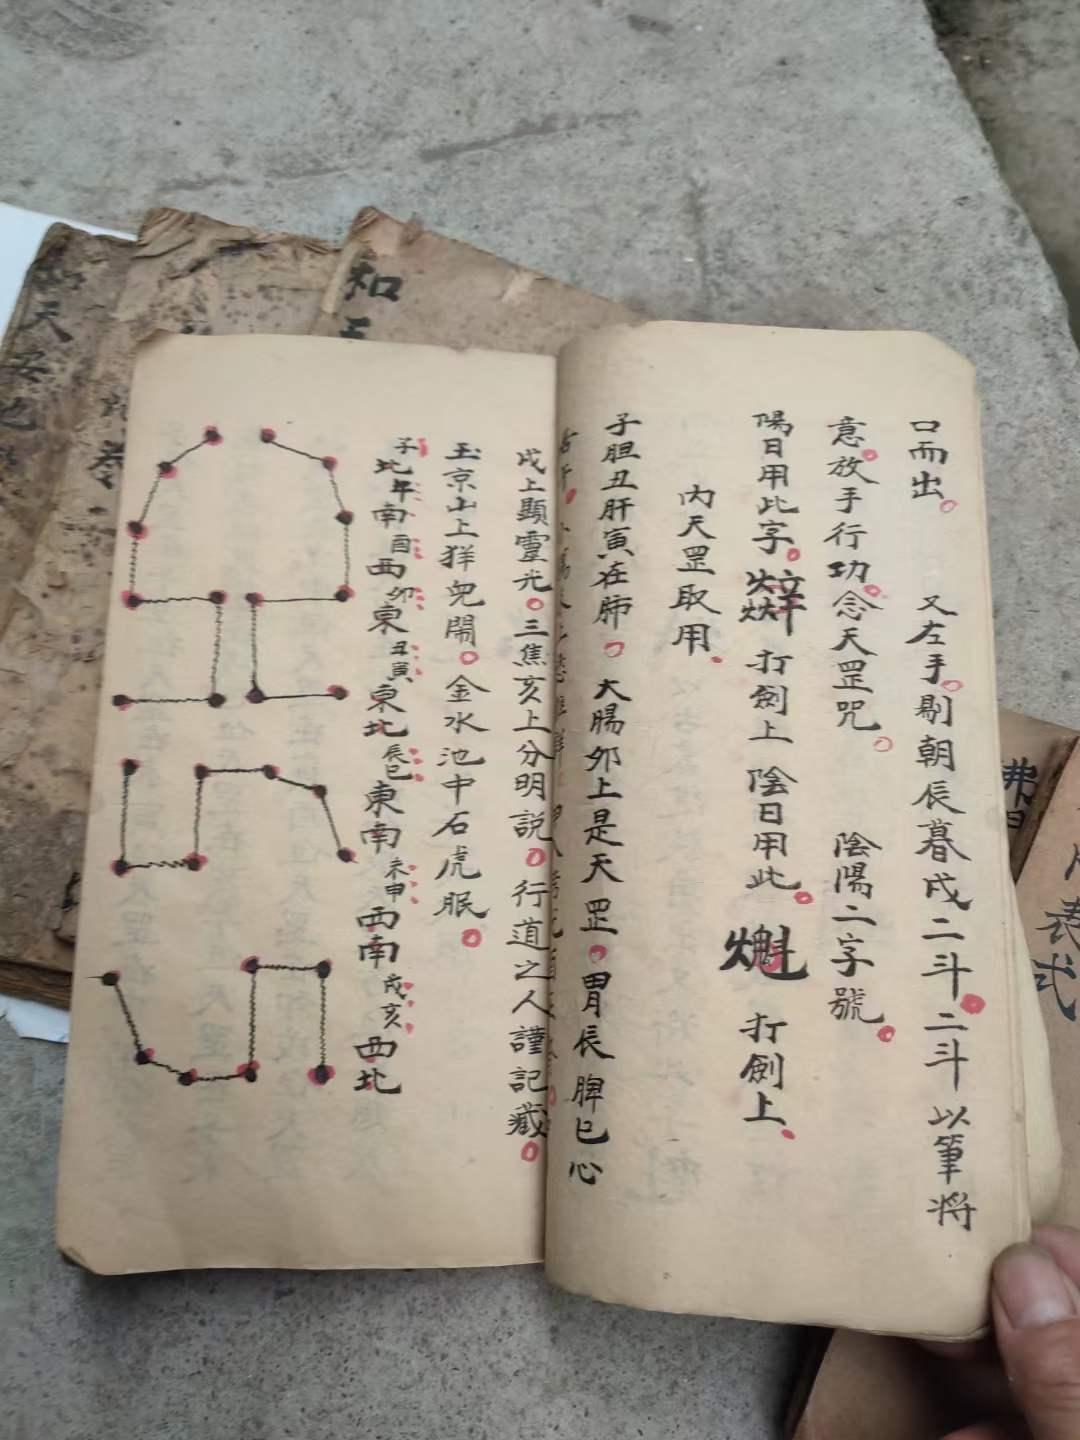 口而出。 又左手。剔朝辰暮戌二斗。二斗以筆將
意。放手行功。念天罡咒。 陰陽二字號。
陽日用此字。 打劍上 陰日用此。 打劍上。
內天罡取用。
子胆丑肝寅在肺。大腸卯上是天罡。胃辰脾巳心
戌上顯靈光。三焦亥上分明說。行道之人謹記藏。
玉京山上犴兜鬧。金水池中石虎眠。
子北午南酉西卯東丑寅東北辰巳東南未申西南戌亥西北
天
和
表式